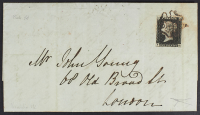 Mr John Young
68 Old Broad St
London